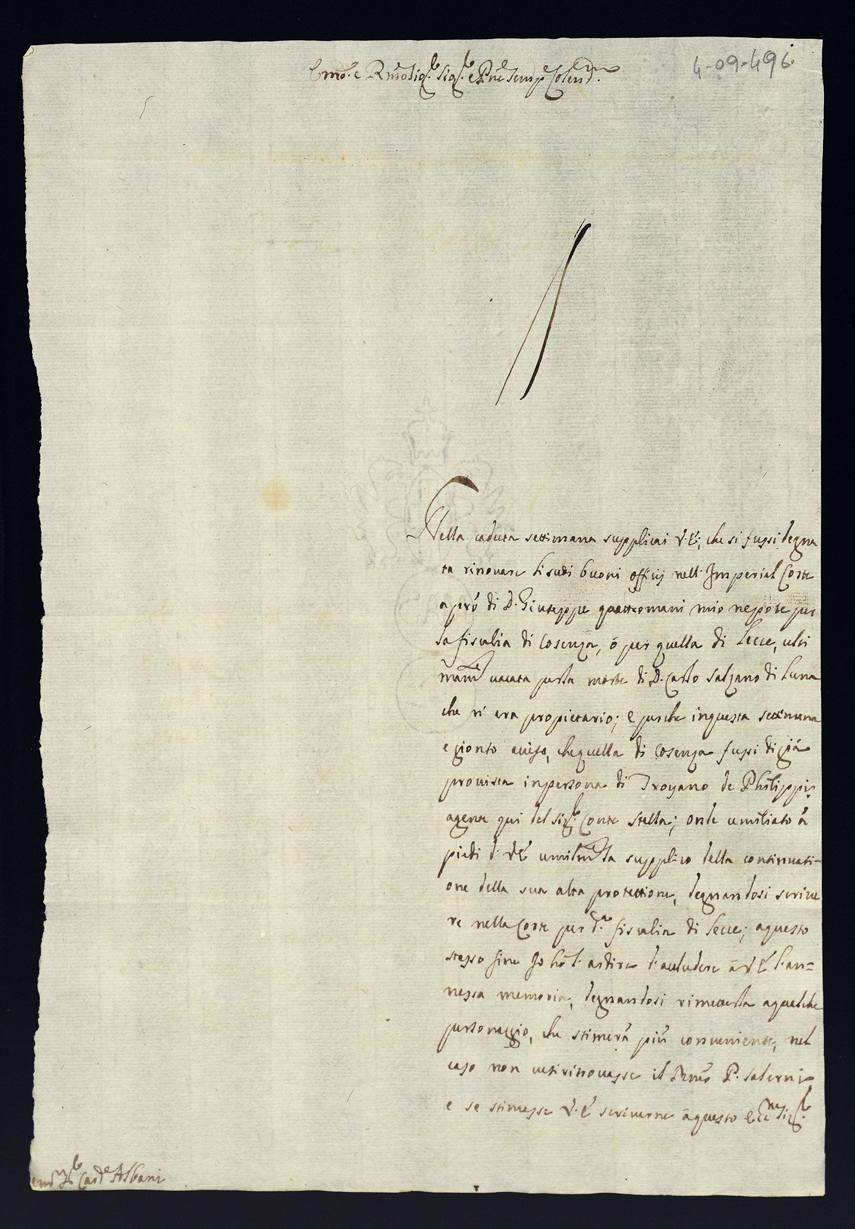 4-09-496.
Em̃o. e R̃mo Sig.r Sig.r e Pñe Semp. Colend.mo
Nella caduta settimana supplicai V.E., che si fussi degna
ta rinovare li suoi buoni officij nell'Imperial Corte
a prò di D. Giuseppe quattromani mio nepote per
la fiscalia di Cosenza, ò per quella di Lecce, ulti
mam.te vacata per la morte di D. Carlo Salzano di Luna
che n'era propietario; e perche in questa settimana
e gionto aviso, che quella di Cosenza fussi di già
provista in persona di Troyano de Philippis
agente qui del Sig.r Conte Stella; onde umiliato à
piedi di V.E. umilm.te la supplico della continuati-
one della sua alta protettione, degnandosi scrive
re nella Corte per d.a fiscalia di Lecce; a questo
stesso fine Io hò l'ardire d'accludere à V.E. l'an=
nessa memoria, degnandosi rimetterla a qualche
personaggio, che stimerà più conveniente, nel
caso non vi si ritrovasse il R̃mo P. Salerni
e se stimasse V.E. scriverne à questo Sig.r
Sig.r Card.e Albani